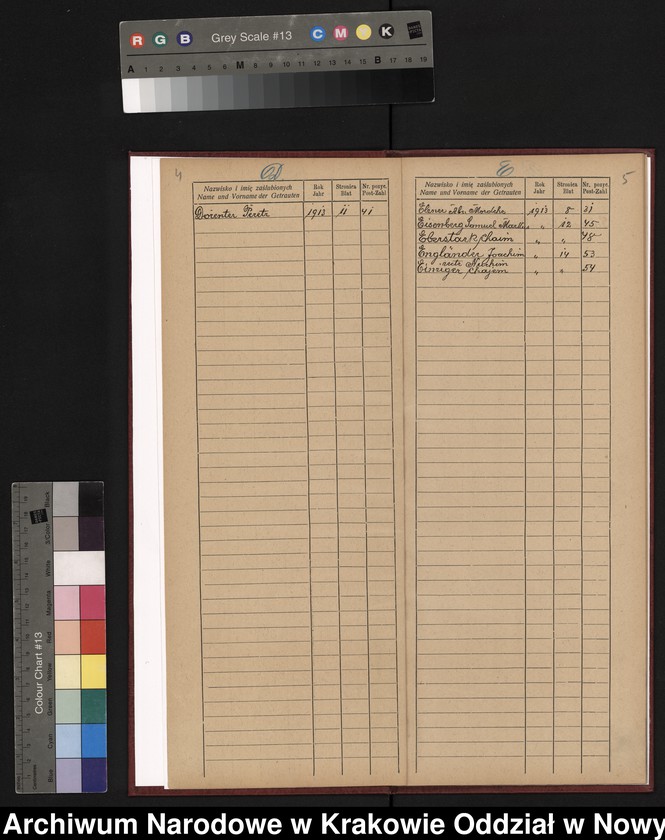 R G B Grey Scale #13 C M Y K
A 1 2 3 4 5 6 M 8 9 10 11 12 13 14 15 B 17 18 19
4
D
Nazwisko i imię zaślubionych
Name und Vorname der Getrauten
Rok
Jahr
Stronica
Blat
Nr. pozyc.
Post-Zahl
Dorenter Peretz 1913 11 41
E
5
Nazwisko i imię zaślubionych
Name und Vorname der Getrauten
Rok
Jahr
Stronica
Blat
Nr. pozyc.
Post-Zahl
1913 8 31
Eisenberg Samuel „ 12 45
Eberstark Chaim „ „ 48
Engländer Joachim „ 14 53
recte
Einiger Chajem „ „ 54
Colour Chart #13
Blue Cyan Green Yellow Red Magenta White 3/Color Black
Archiwum Narodowe w Krakowie Oddział w Nowy